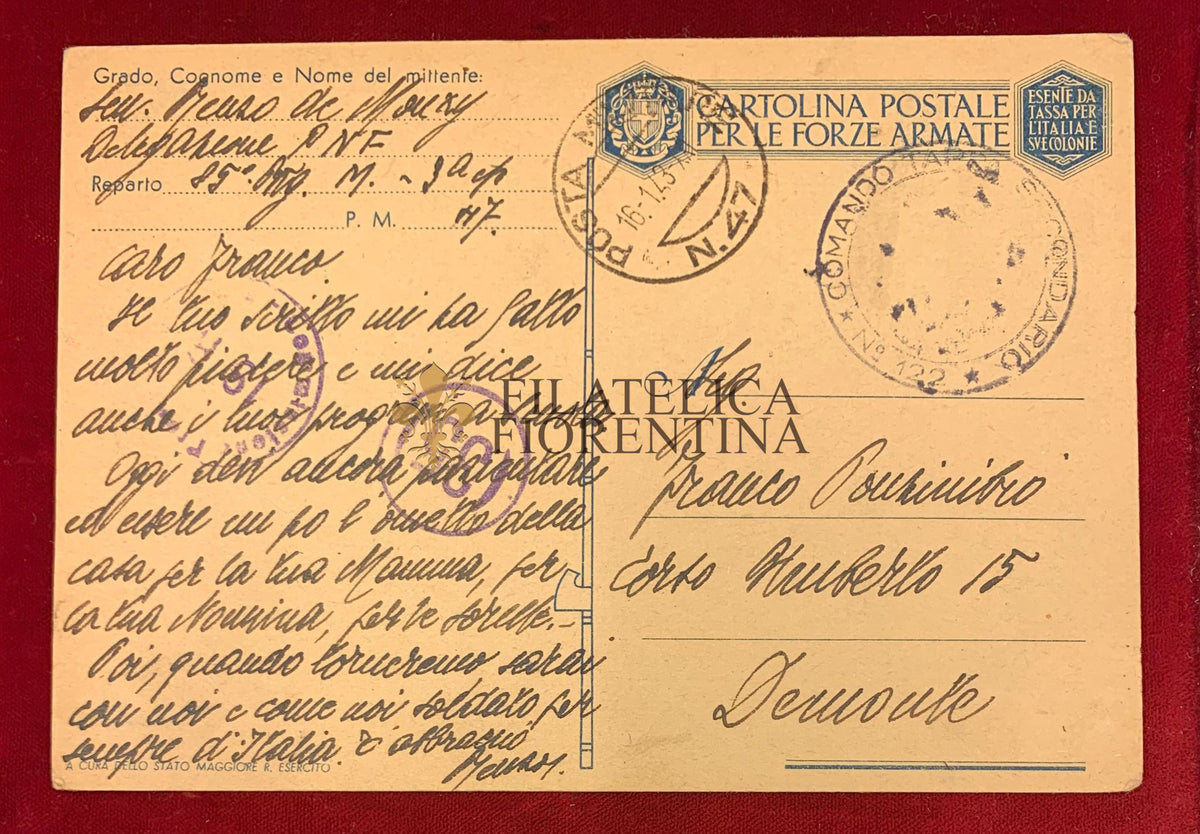 Grado, Cognome e Nome del mittente:
Renzo de Monzy
Delegazione PNF
Reparto 85° M. - 9ª cp
P. M. 47.
POSTA MILITARE
16-1.43
N. 47
CARTOLINA POSTALE
PER LE FORZE ARMATE
ESENTE DA
TASSA PER
L'ITALIA E
SVE COLONIE
COMANDO TAPPA SECONDARIO
N° 122
Caro Franco
Il tuo scritto mi ha fatto
molto piacere e mi dice
anche i tuoi
Oggi devi ancora
ed essere un po l'ometto della
casa per la tua Mamma, per
la tua Nonnina, per le sorelle.-
Poi, quando torneremo sarai
con noi e come noi soldato per
sempre d'Italia. T'abbraccio
Renzo.
A CURA DELLO STATO MAGGIORE R. ESERCITO
FILATELICA
FIORENTINA
Franco
Corso Umberto 15
Demonte